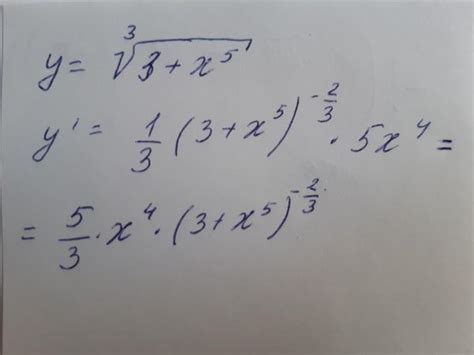 y = ∛(3 + x⁵)
y' = 1/3 (3 + x⁵)^(-2/3) · 5x⁴ =
= 5/3 · x⁴ · (3 + x⁵)^(-2/3)